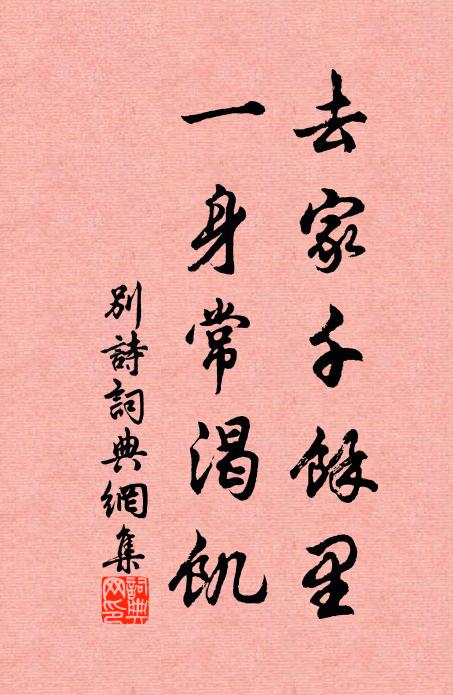 去家千餘里
一身常渴飢
別詩詞典網集
詞典
网印